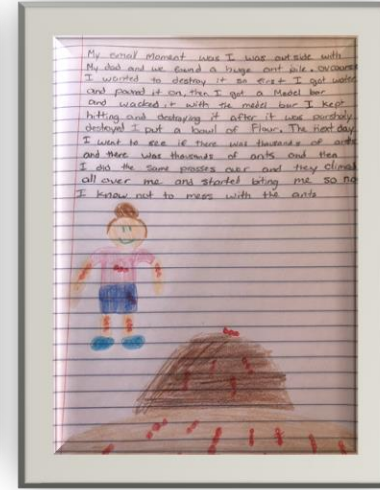 My small Moment was I was out side with
My dad and we found a huge ant pile. ov course
I wanted to destroy it so first I got water
and poured it on, then I got a Medel bar
and wacked it with the medel bar I kept
hitting and destroying it after it was
destroyed I put a bowl of Flour. The next day
I went to see if there was thousands of ants
and there was thousands of ants and then
I did the same prosses over and they climed
all over me and started biting me so no
I know not to mess with the ants